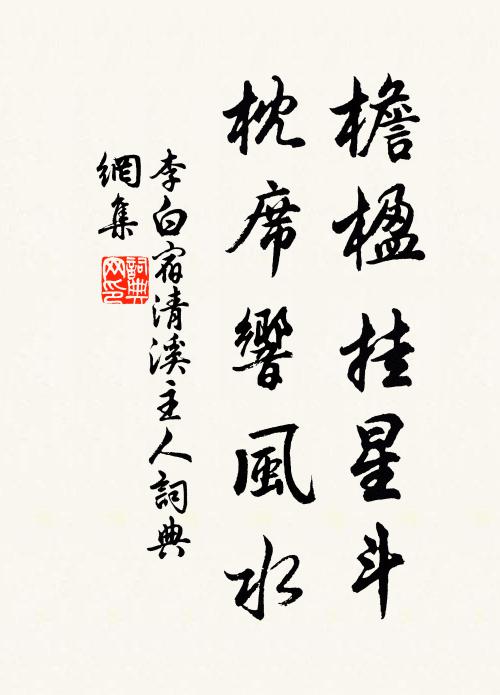 檐楹挂星斗
枕席響風水
李白宿清溪主人詞典
網集
詞典
網印